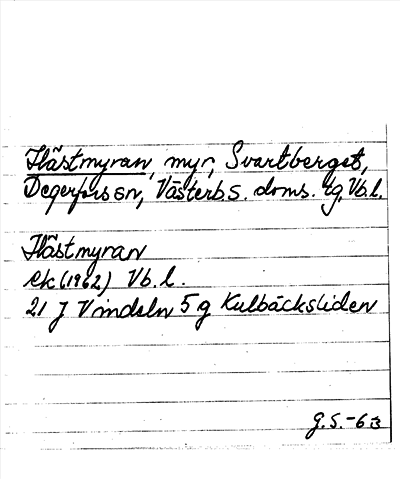 Hästmyran, myr, Svartbergets,
Degerfors sn, Västerb. s. doms. tg, Vb.l.
Hästmyran
ek (1962) Vb. l.
21 J Vindeln 5 g Kulbäcksliden
G.S.-63